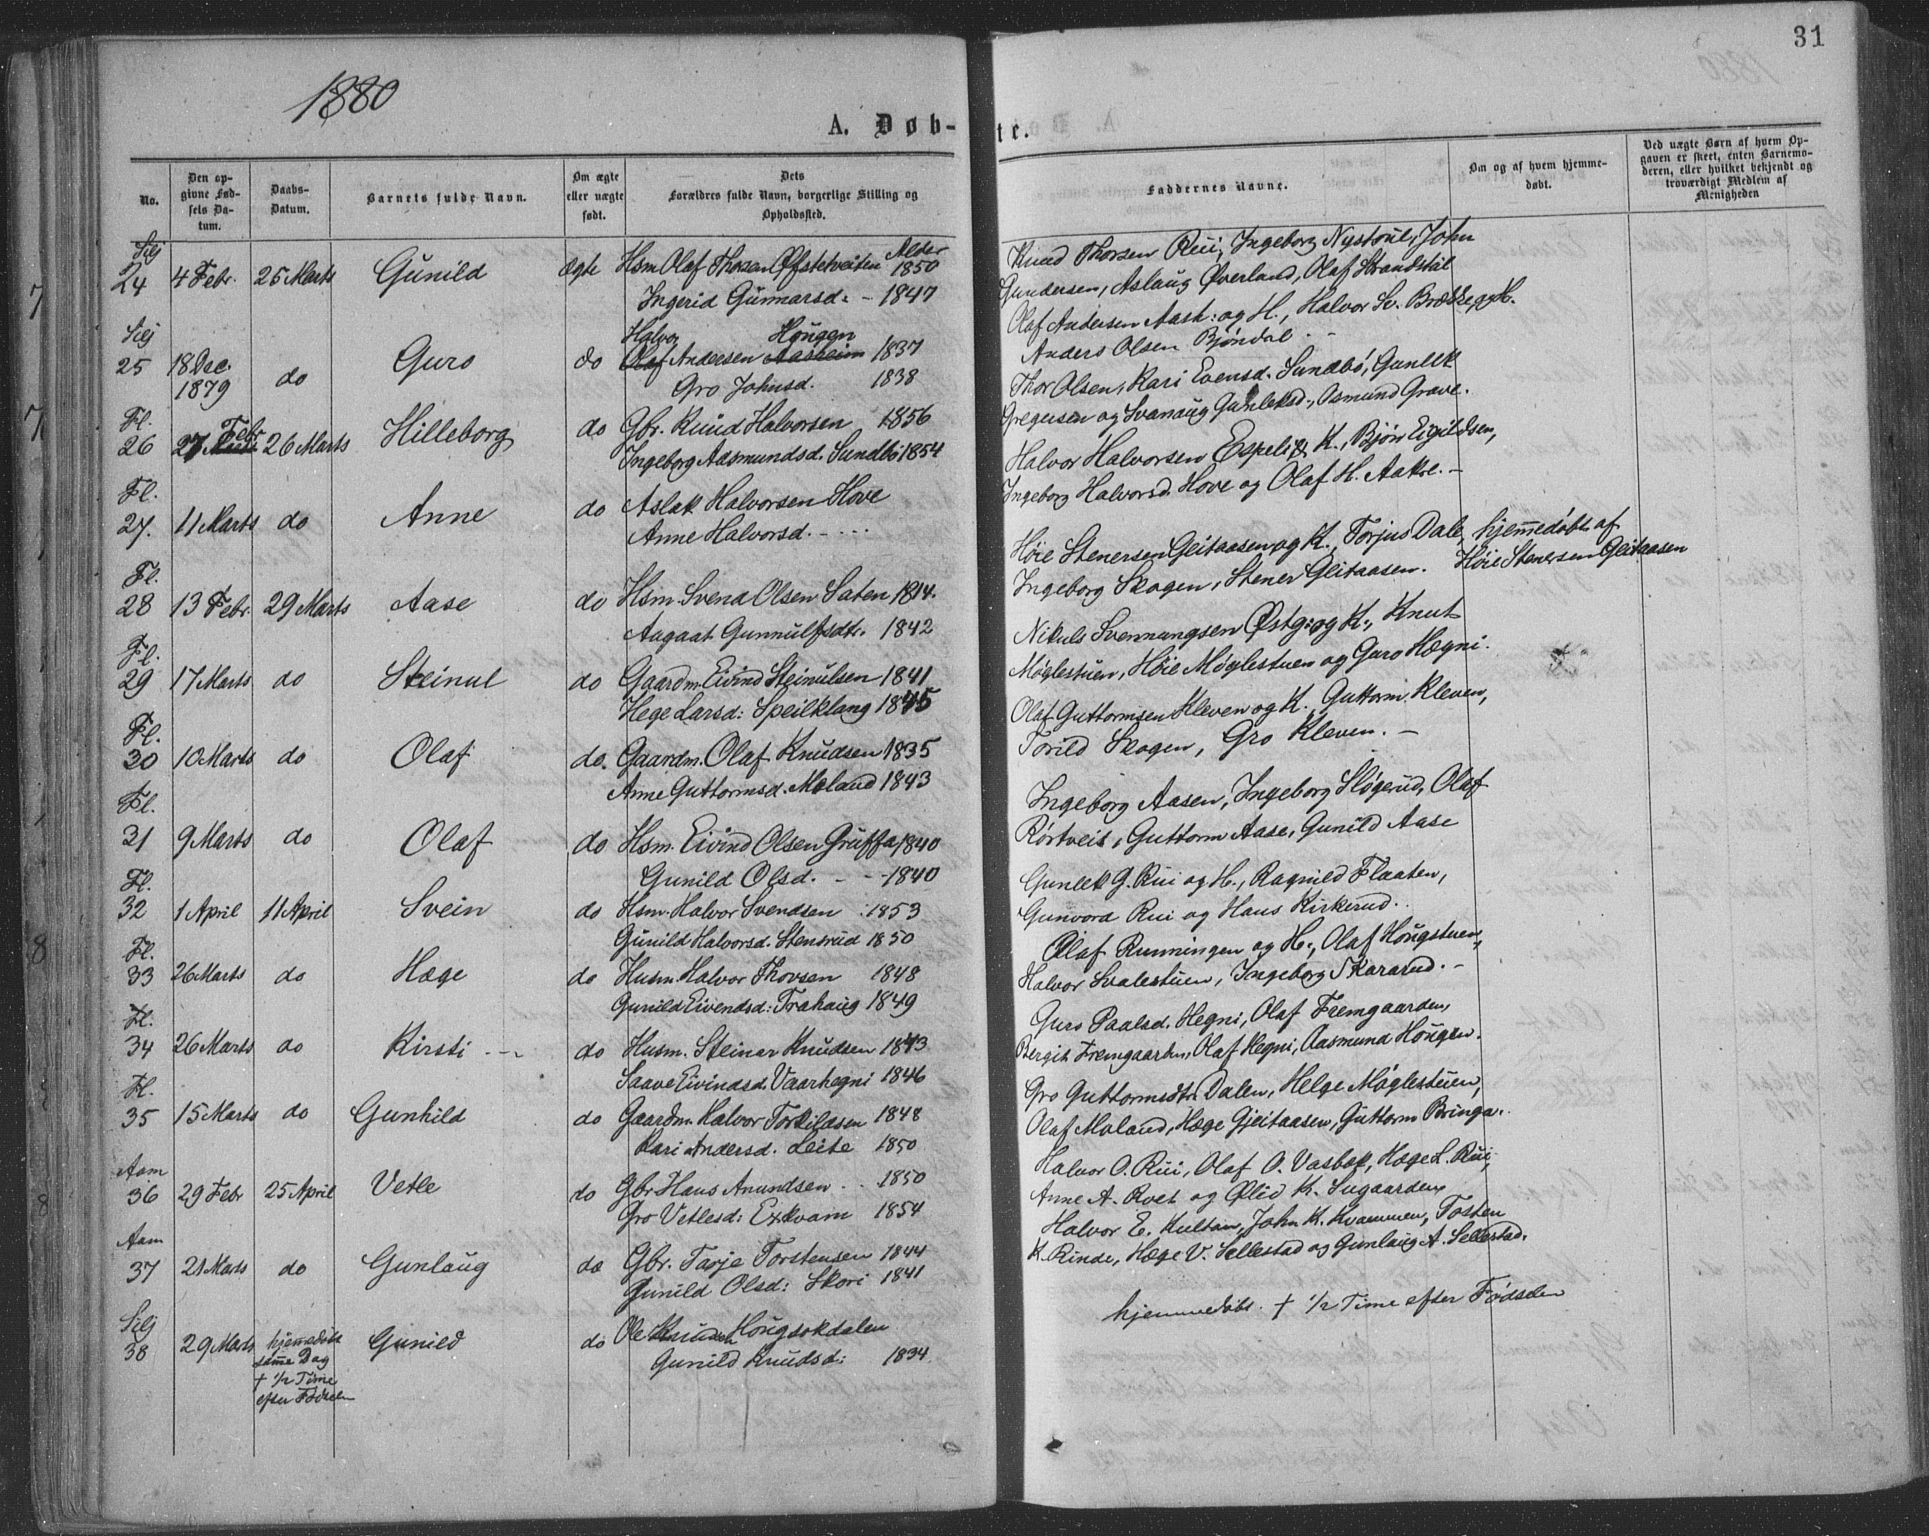 31
1880
A. Døb-
te.
No.
Den op-
givne Fød-
sels Da-
tum.
Daabs-
Datum.
Barnets fulde Navn.
Om ægte
eller uægte
født.
Dets
Forældres fulde Navn, borgerlige Stilling og
Opholdssted.
Faddernes Navne.
Om og af hvem hjemme-
døbt.
Ved uægte Børn af hvem Op-
gaven er skeet, enten Barnemo-
deren, eller hvilket bekjendt og
troværdigt Medlem af
Menigheden
Silj Alder
24 4 Febr. 25 Marts Gunild ægte Hsm Olaf Thorsen Øfstetveiten 1850
Ingerid Gunnarsd: - 1847
Knud Thorsen Rui, Ingeborg Nystøul, John
Gundersen, Aslaug Øverland, Olaf Strandstøl
Silj Halvor Hougen
25 18 Dec. do Guro do Olaf Andersen Aasheim 1837
1879 Gro Johnsd. 1838
Olaf Andersen Aash: og H., Halvor Sv. Brække, og H.
Anders Olsen Bjøndal
Fl. Febr
26 27 Marts 26 Marts Hilleborg do Gbr. Knud Halvorsen 1856
Ingeborg Aasmundsd. Sundbö 1854
Thor Olsen, Kari Evensd. Sundbø, Gunlek
Gregusen og Svanaug Gunleksd., Osmund Grave.
Fl.
27. 11 Marts do Anne do Aslak Halvorsen Hove
Anne Halvorsd. - - -
Halvor Halvorsen Espeli & K., Bjørn Eigildsen,
Ingeborg Halvorsd. Hove og Olaf H. Aakre. -
Fl.
28 13 Febr. 29 Marts Aase do Hsm. Svend Olsen Saten 1814.
Aagaat Gunnulfsdtr. 1842
Høie Stenersen Gleitaasen og K., Torjus Dale, hjemmedøbt af
Ingeborg Skogen, Stener Gleitaasen. Høie Stenersen Gleitaasen
Fl.
29 17 Marts do Steinul do Gaardm. Eivind Steinulsen 1841
Hege Larsd: Speilklang 1845
Nikuls Svennungsen Østg: og K., Knut
Møglestuen, Høie Møglestuen og Guro Hægni.
Fl.
30 10 Marts do Olaf do. Gaardm. Olaf Knudsen 1835
Anne Guttormsd. Moland 1843
Olaf Guttormsen Kleven og K., Guttorm Kleven,
Torild Skogen, Gro Kleven. -
Fl.
31 9 Marts do Olaf do Hsm. Eivind Olsen Gruffa 1840
Gunild Olsd. - - 1840
Ingeborg Aasen, Ingeborg Sløgerud, Olaf
Rørtveit, Guttorm Aase, Gunild Aase
Fl.
32 1 April 11 April Svein do Hsm. Halvor Svendsen 1853
Gunild Halvorsd. Stensrud 1850
Gunlek G. Rui og H., Ragnild Flaaten,
Gunvord Rui og Hans Kirkerud.
Fl.
33 26 Marts do Hæge do Husm. Halvor Thovsen 1848
Gunild Eivendsd: Trahaug 1849
Olaf Runningen og H., Olaf Hougstuen,
Halvor Svalestuen, Ingeborg Skararud. -
Fl.
34 26 Marts do Kirsti - - do Husm. Steinar Knudsen 1843
Saave Eivindsd. Vaarhegni 1846
Guro Paalsd. Hegni, Olaf Fremgaarden,
Bergit Fremgaarden, Olaf Hegni, Aasmund Hougen.
Fl.
35 15 Marts do Gunhild do Gaardm. Halvor Torkildsen 1848
Kari Andersd. Leite 1850
Gro Guttormsdtr Dalen, Helge Møglestuen,
Olaf Moland, Hæge Gjeitaasen, Guttorm Bringa.
Aam
36 29 Febr 25 April Vetle do Gbr Hans Anundsen 1850
Gro Vetlesd: Exkvam 1854
Halvor O. Rui, Olaf O. Vasbøk, Hæge L. Rui,
Anne A. Roet og Ølid K. Sugaarden
Aam
37 21 Marts do Gunlaug do Gbr. Tarje Torstensen 1844
Gunild Olsd: Skori 1841
Halvor E. Kultan, John K. Kvammen, Tosten
K. Rinde, Hæge V. Sellestad og Gunlaug A. Sellestad.
Silj
38 29 Marts hjemedöbt Gunild do Ole Knudsen Hougsokdalen
same Dag Gunild Knudsd: 1834.
+ 1/2 Time
efter Fødselen
hjemmedøbt. + 1/2 Time efter Fødselen